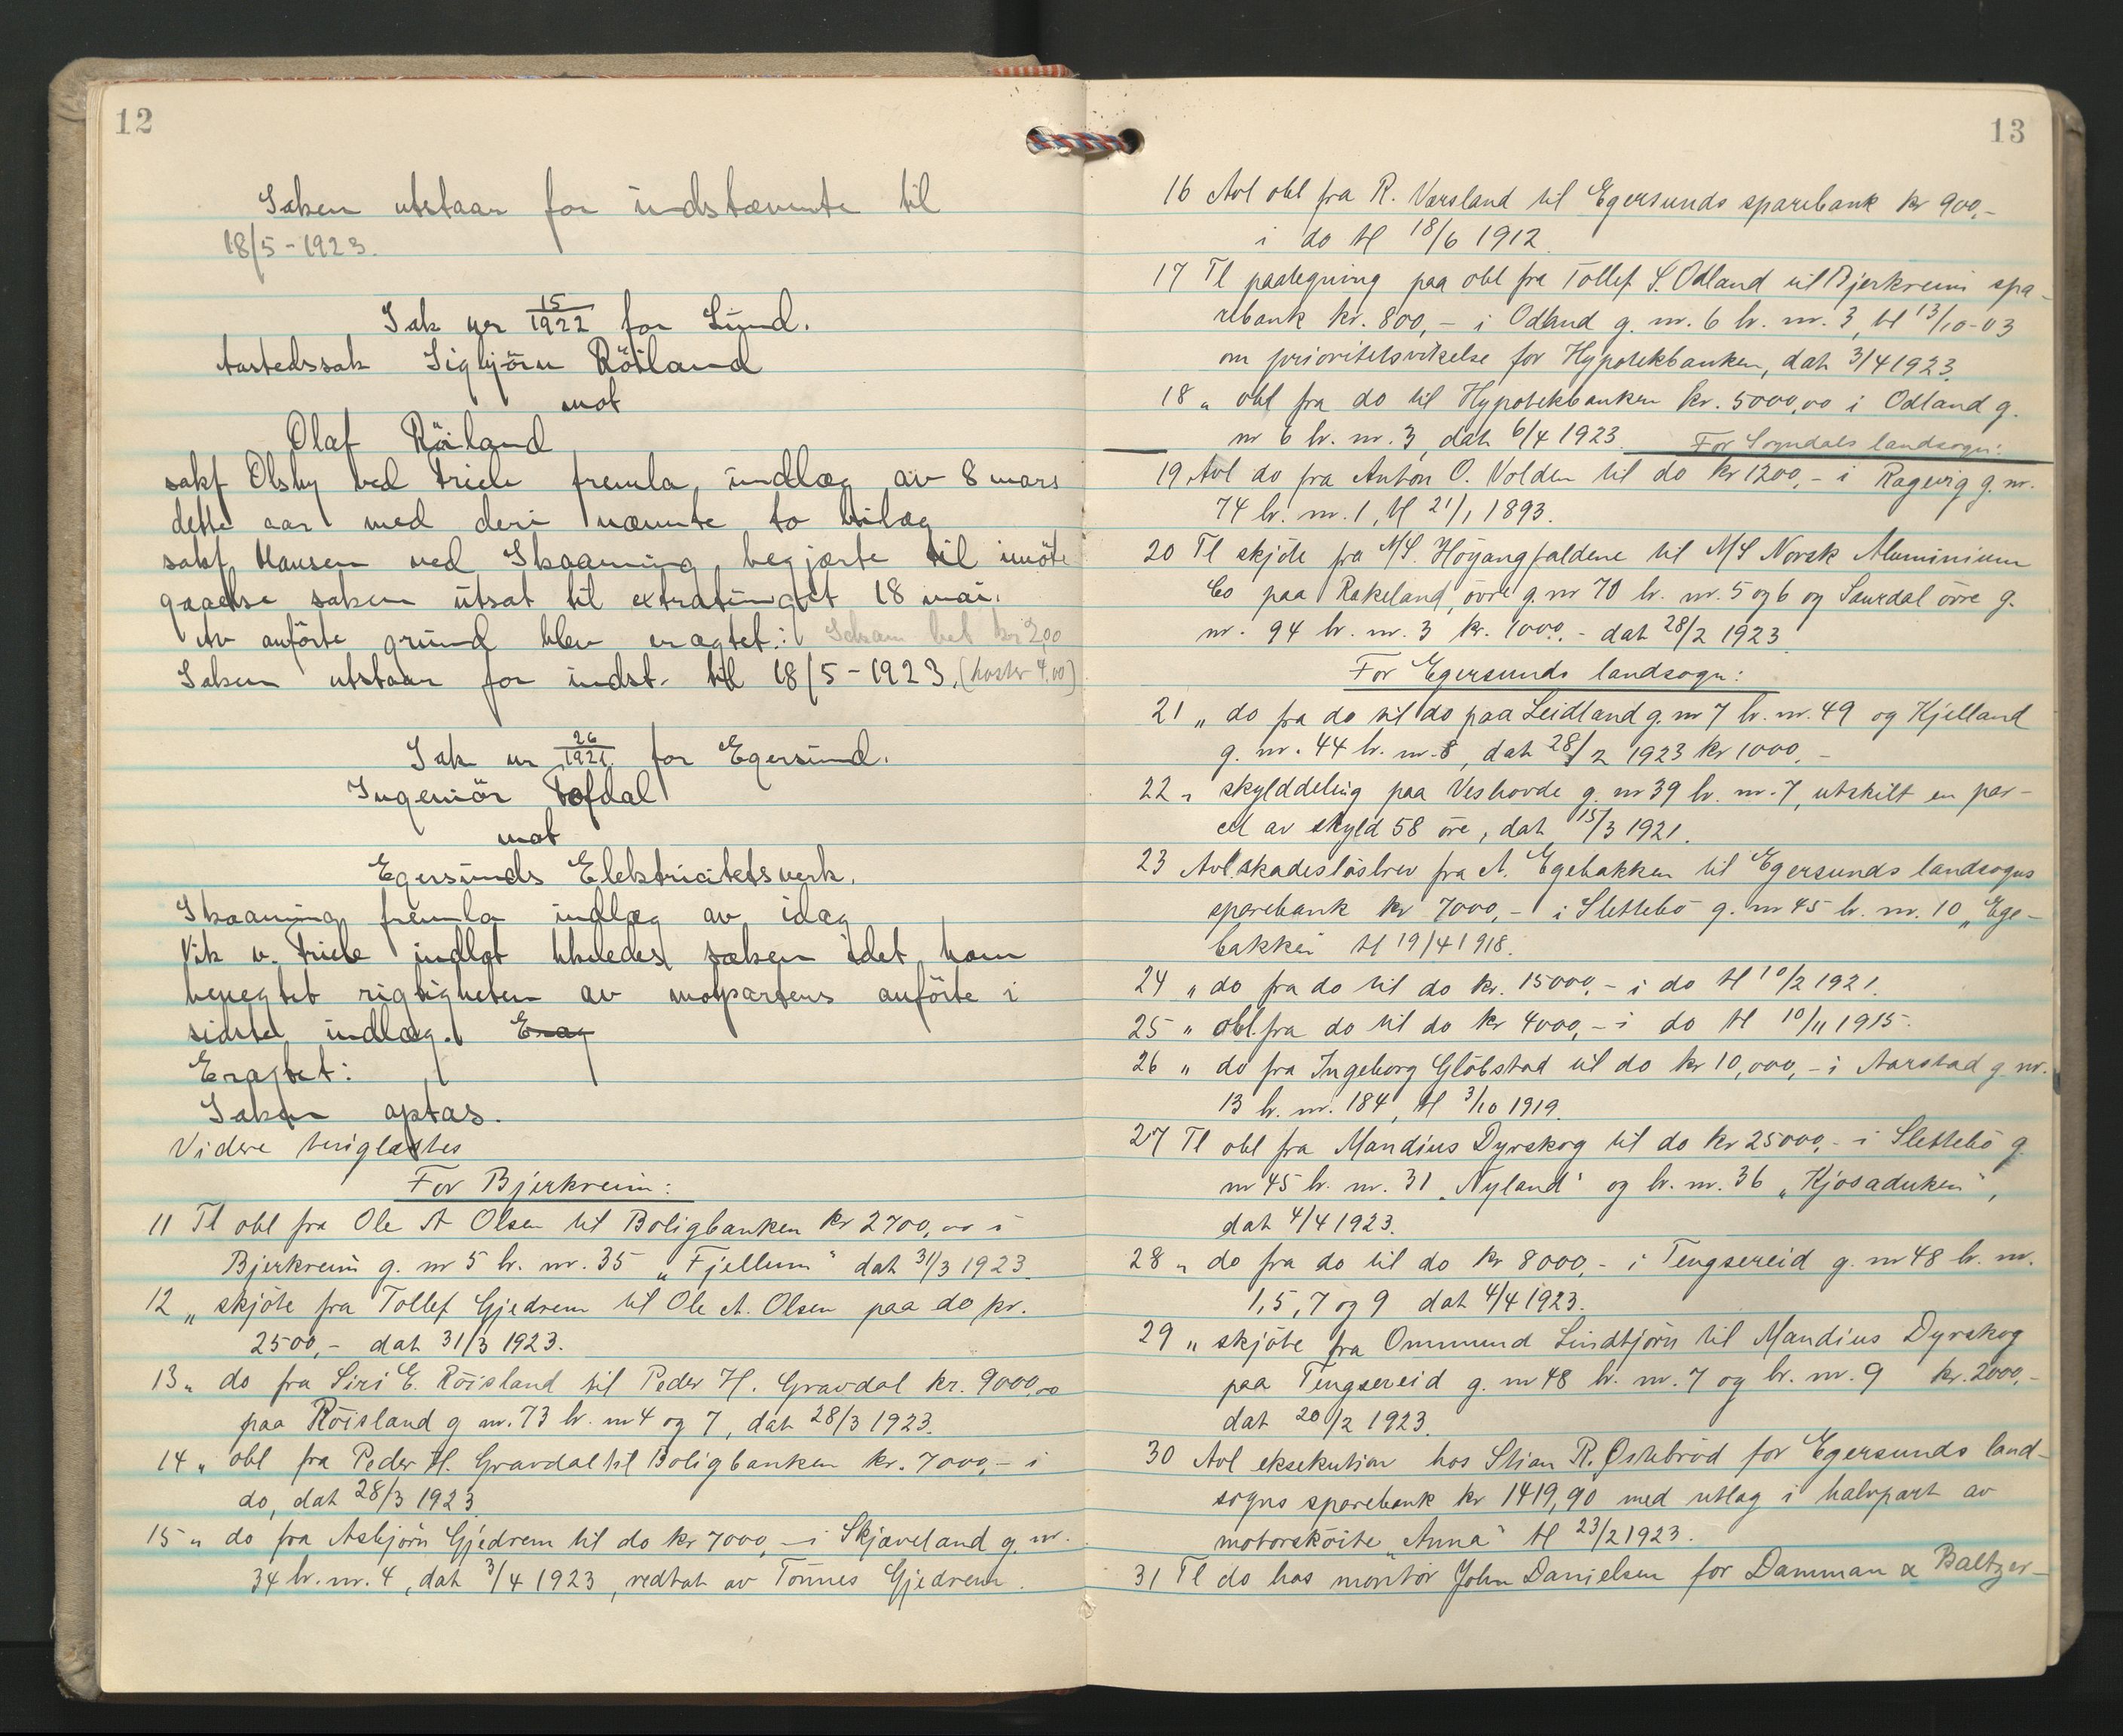 12
Saken utstaar for indstævnte til
18/5-1923.
Sak nr 15/1922 for Lund.
Aastedssak Sigbjörn Röiland
mot
Olaf Röiland
sakf Olsby ved Friele fremla indlæg av 8 mars
dette aar med deri nævnte to bilag
sakf Hansen ved Skaaning begjærte til imöte
gaaelse saken utsat til extratinget 18 mai.
Av anförte grund blev eragtet: bet kr 2,00
Saken utstaar for indst. til 18/5-1923. (koster 4,00)
Sak nr 26/1921 for Egersund.
Ingeniör Tofdal
mot
Egersunds Elektricitetsverk.
Skaaning fremla indlæg av idag
Vik v. Friele indlot saken idet han
benegtet rigtigheten av motpartens anförte i
sidste indlæg. Erag
Eragtet:
Saken optas.
Videre tinglæstes
For Bjerkreim:
11 Tl obl fra Ole A Olsen til Boligbanken kr 2700,00 i
Bjerkreim g. nr 5 br. nr. 35 „Fjellum“ dat 31/3 1923.
12 „ skjöte fra Tollef Gjedrem til Ole A. Olsen paa do kr.
2500,- dat 31/3 1923.
13 „ do fra Siri E. Röisland til Peder H. Gravdal kr. 9000,00
paa Röisland g nr. 73 br. nr 4 og 7, dat 28/3 1923.
14 „ obl fra Peder H. Gravdal til Boligbanken kr. 7000,- i
do, dat 28/3 1923
15 „ do fra Asbjörn Gjedrem til do kr 7000,- i Skjæveland g. nr.
34 br. nr. 4, dat 3/4 1923, vedtat av Tönnes Gjedrem.
13
16 Avl obl fra R. Værsland til Egersunds sparebank kr 900,-
i do tl 18/6 1912.
17 Tl paategning paa obl fra Tollef S. Odland til Bjerkreim spa-
rebank kr. 800,- i Odland g. nr. 6 br. nr. 3, tl 13/10-03
om prioritetsvikelse for Hypotekbanken, dat 3/4 1923.
18 „ obl fra do til Hypotekbanken kr. 5000,00 i Odland g.
nr 6 br. nr. 3, dat 6/4 1923. For Sogndals landsogn:
19 Avl do fra Anton O. Volden til do kr 1200,- i Rægevig g. nr.
74 br. nr. 1, tl 21/1 1893.
20 Tl skjöte fra A/S. Höyangfaldene til A/S Norsk Aluminium
Co paa Rakeland, övre g. nr 70 br. nr. 5 og 6 og Saurdal övre g.
nr. 94 br. nr. 3 kr. 1000,- dat 28/2 1923.
For Egersunds landsogn:
21 „ do fra do til do paa Leidland g. nr 7 br. nr. 49 og Kjelland
g. nr. 44 br. nr. 8, dat 28/2 1923 kr 1000,-
22 „ skylddeling paa Veshovde g. nr 39 br. nr. 7, utskilt en par-
cel av skyld 58 öre, dat 15/3 1921.
23 Avl. skadeslösbrev fra A. Egebakken til Egersunds landsogns
sparebank kr 7000,- i Slettebö g. nr 45 br. nr. 10 „Ege-
bakken“ tl 19/4 1918.
24 „ do fra do til do kr. 15000,- i do tl 10/2 1921.
25 „ obl. fra do til do kr 4000,- i do tl 10/11 1915.
26 „ do fra Ingeborg Glöbstad til do kr 10,000,- i Aarstad g nr.
13 br. nr. 184, tl 3/10 1919.
27 Tl obl fra Mandius Dyrskog til do kr 25000,- i Slettebö g.
nr 45 br. nr. 31 „Nyland“ og br. nr. 36 „Kjosaduken“,
dat 4/4 1923.
28 „ do fra do til do kr 8000,- i Tengsereid g. nr 48 br. nr.
1, 5, 7 og 9 dat 4/4 1923.
29 „ skjöte fra Ommund Lindtjörn til Mandius Dyrskog
paa Tengsereid g. nr 48 br. nr. 7 og br. nr. 9 kr. 2000,-
dat 20/2 1923.
30 Avl eksekution hos Stian R. Østebröd for Egersunds land-
sogns sparebank kr 1419,90 med utlæg i halvpart av
motorsköite „Anna“ tl 23/2 1923.
31 Tl do hos montör John Danielsen for Damman & Baltzer-